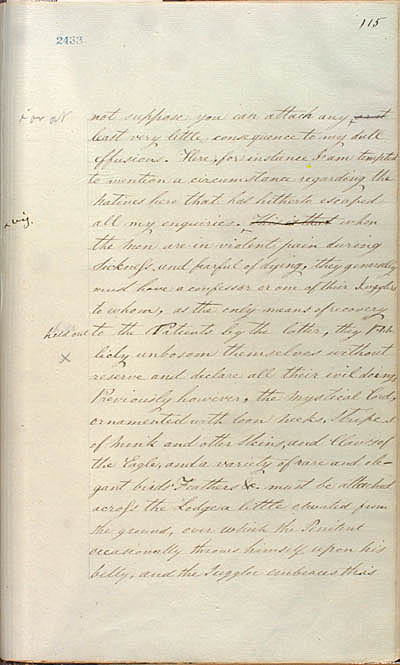 115
2433
+ or at not suppose you can attach any, or at
least very little, consequence to my dull
effusions. Here, for instance I am tempted
to mention a circumstance regarding the
Natives here that has hitherto escaped
viz. all my enquiries. This is that when
the men are in violent pain during
Sickness, and fearful of dying, they generally
must have a confessor or one of their Jugglers
to whom, as the only means of recovery
held out to the Patients by the latter, they Pub
X licly unbosom themselves without
reserve and declare all their evil doings,
Previously however, the Mystical Cord,
ornamented with loon necks, Stripes
of mink and otter Skins, and Claws of
the Eagle, and a variety of rare and ele-
gant birds Feathers & must be attached
across the Lodge a little elevated from
the ground, over which the Penitent
occasionally throws himself upon his
belly, and the Juggler embraces this